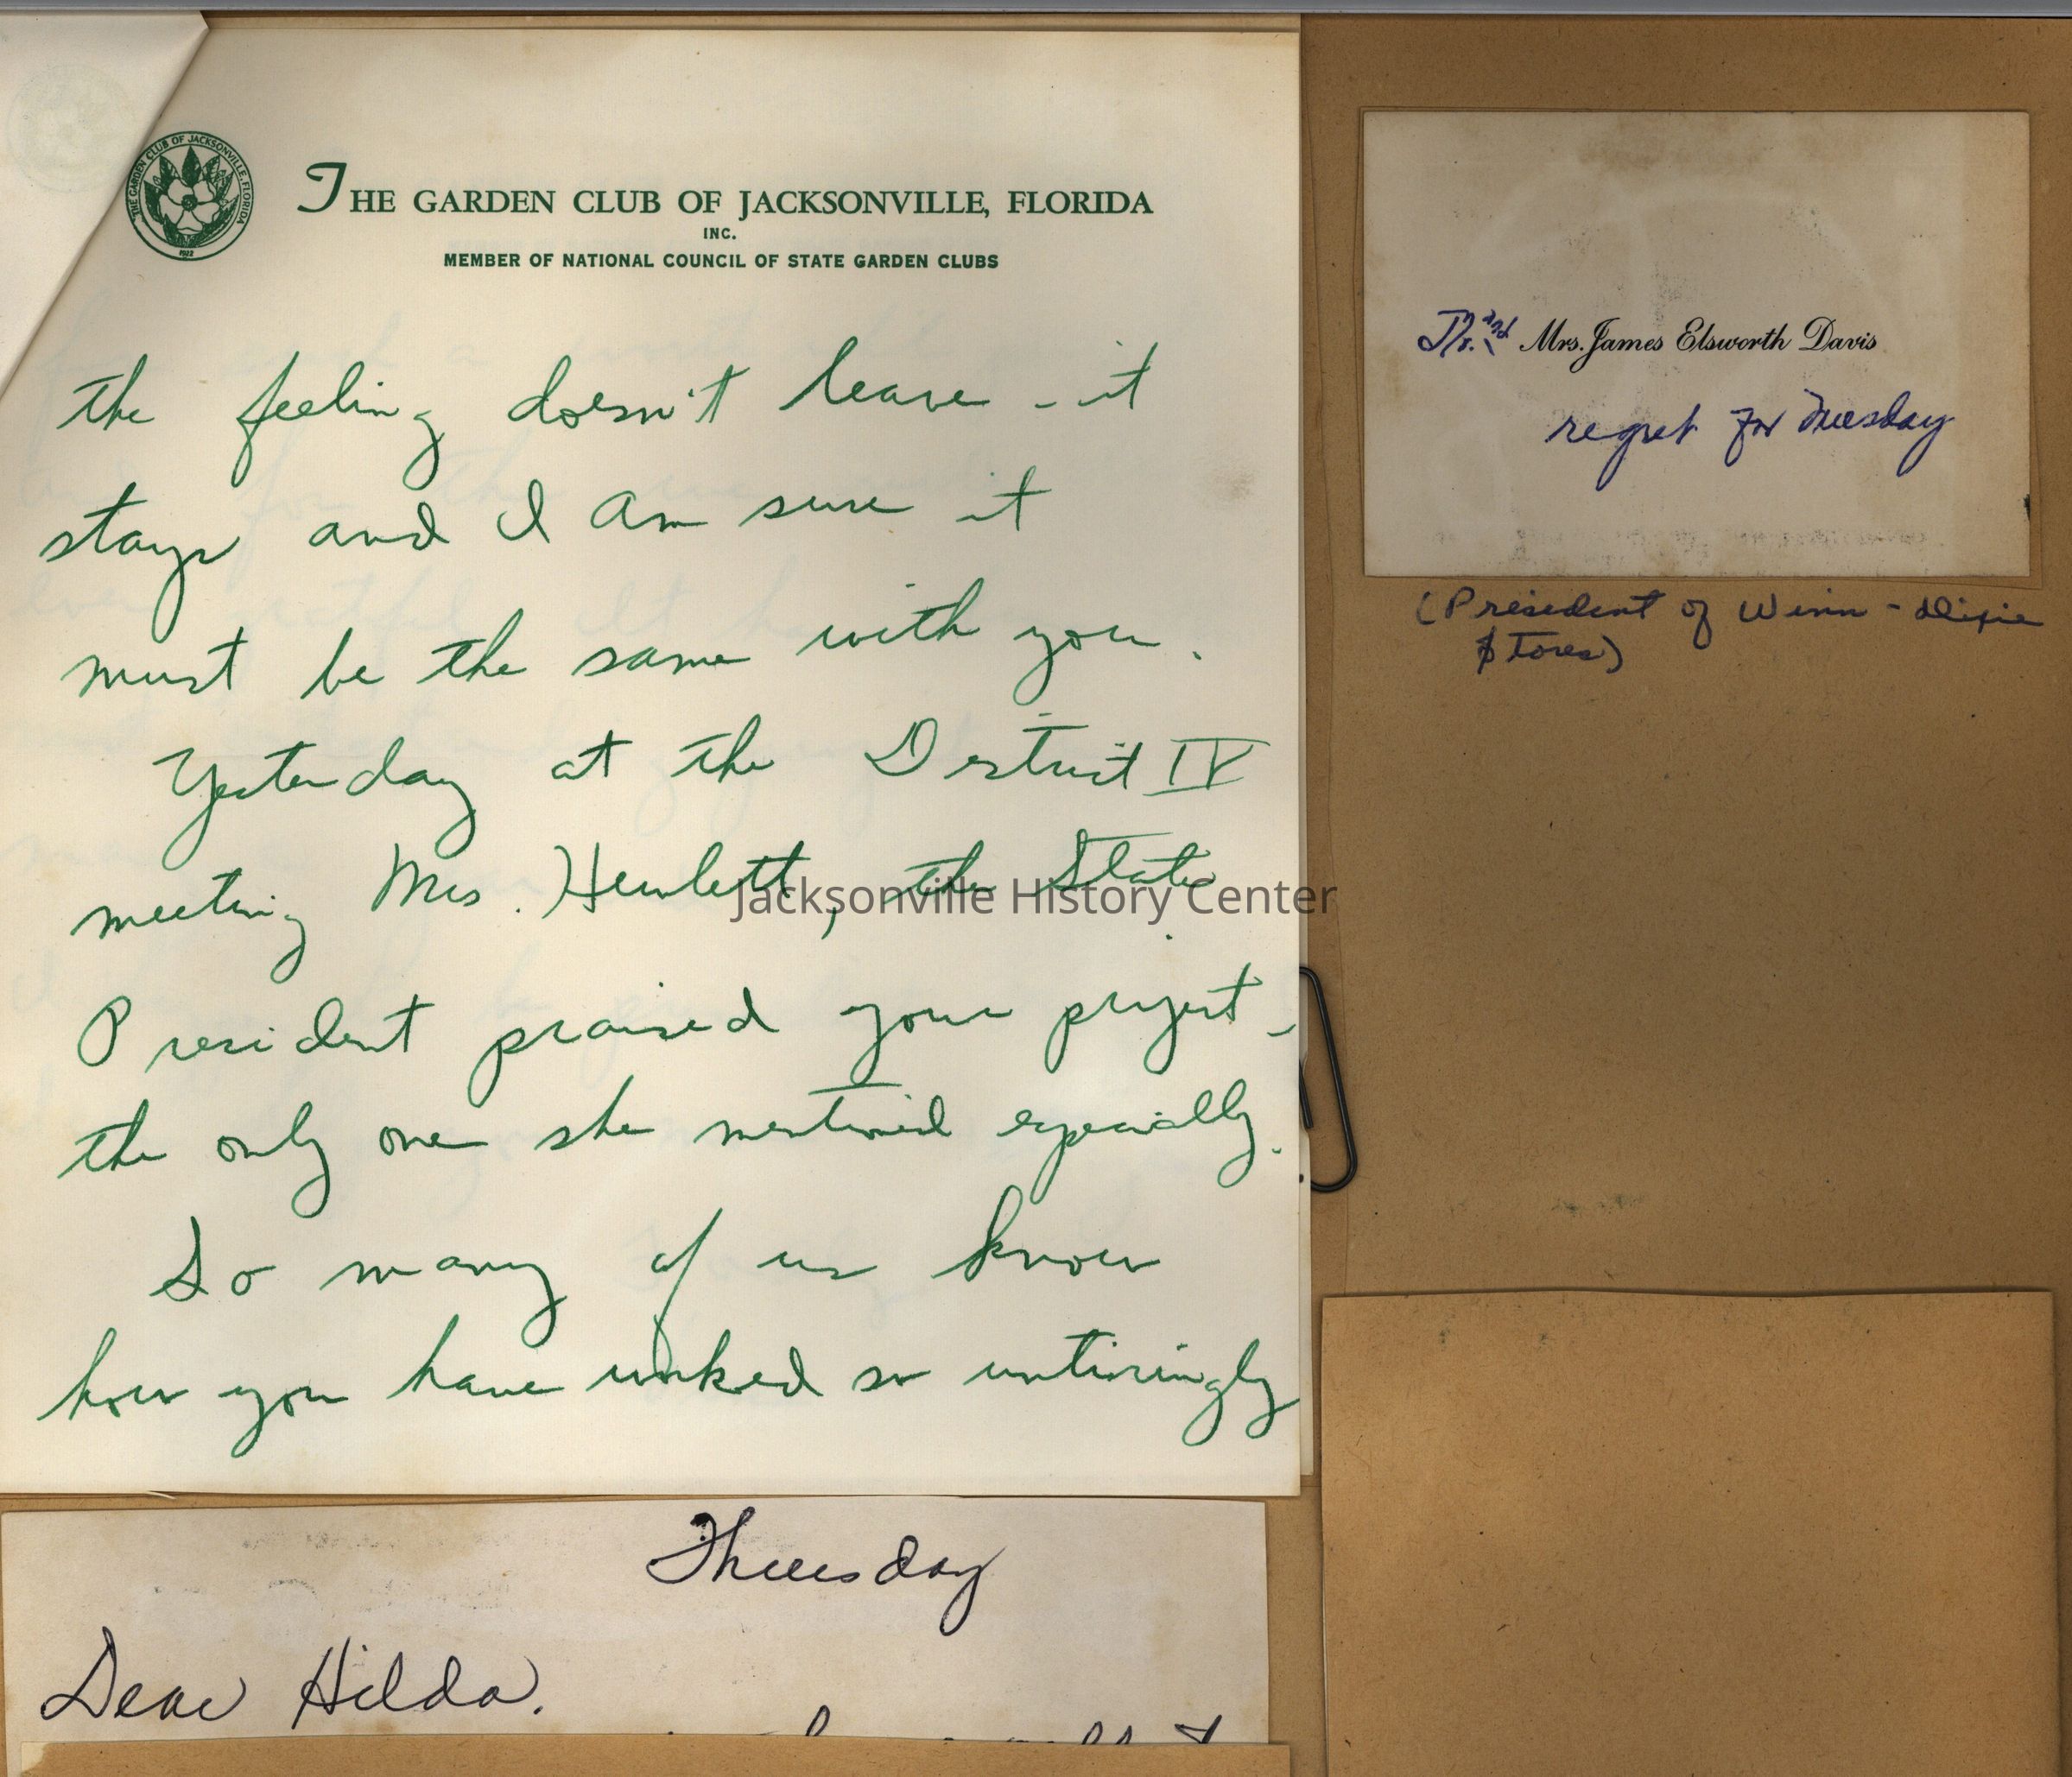 THE GARDEN CLUB OF JACKSONVILLE, FLORIDA
1922
THE GARDEN CLUB OF JACKSONVILLE, FLORIDA
INC.
MEMBER OF NATIONAL COUNCIL OF STATE GARDEN CLUBS
the feeling doesn't leave - it
stays and I am sure it
must be the same with you.
Yesterday at the District IV
meeting Mrs. Hewlett, the State
President praised your project -
the only one she mentioned especially.
So many of us know
how you have worked so untiringly
Jacksonville History Center
Thursday
Dear Hilda.
Mr. and Mrs. James Elsworth Davis
regret for Tuesday
(President of Winn-Dixie
Stores)